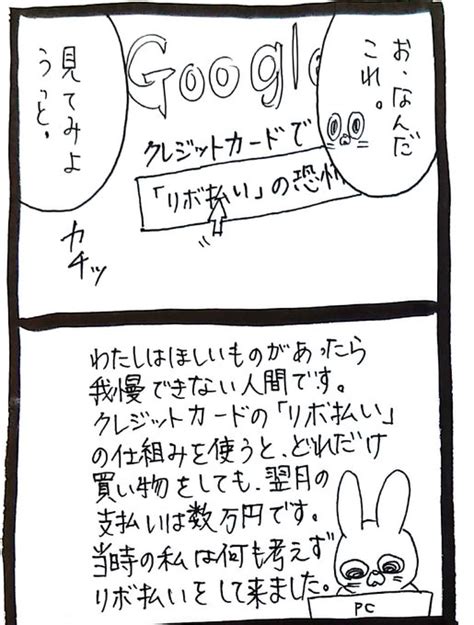 お、なんだ
これ。
Google
クレジットカードで
「リボ払い」の恐怖
見てみよ
うっと。
カチッ
わたしはほしいものがあったら
我慢できない人間です。
クレジットカードの「リボ払い」
の仕組みを使うと、どれだけ
買い物をしても、翌月の
支払いは数万円です。
当時の私は何も考えず
リボ払いをして来ました。
PC